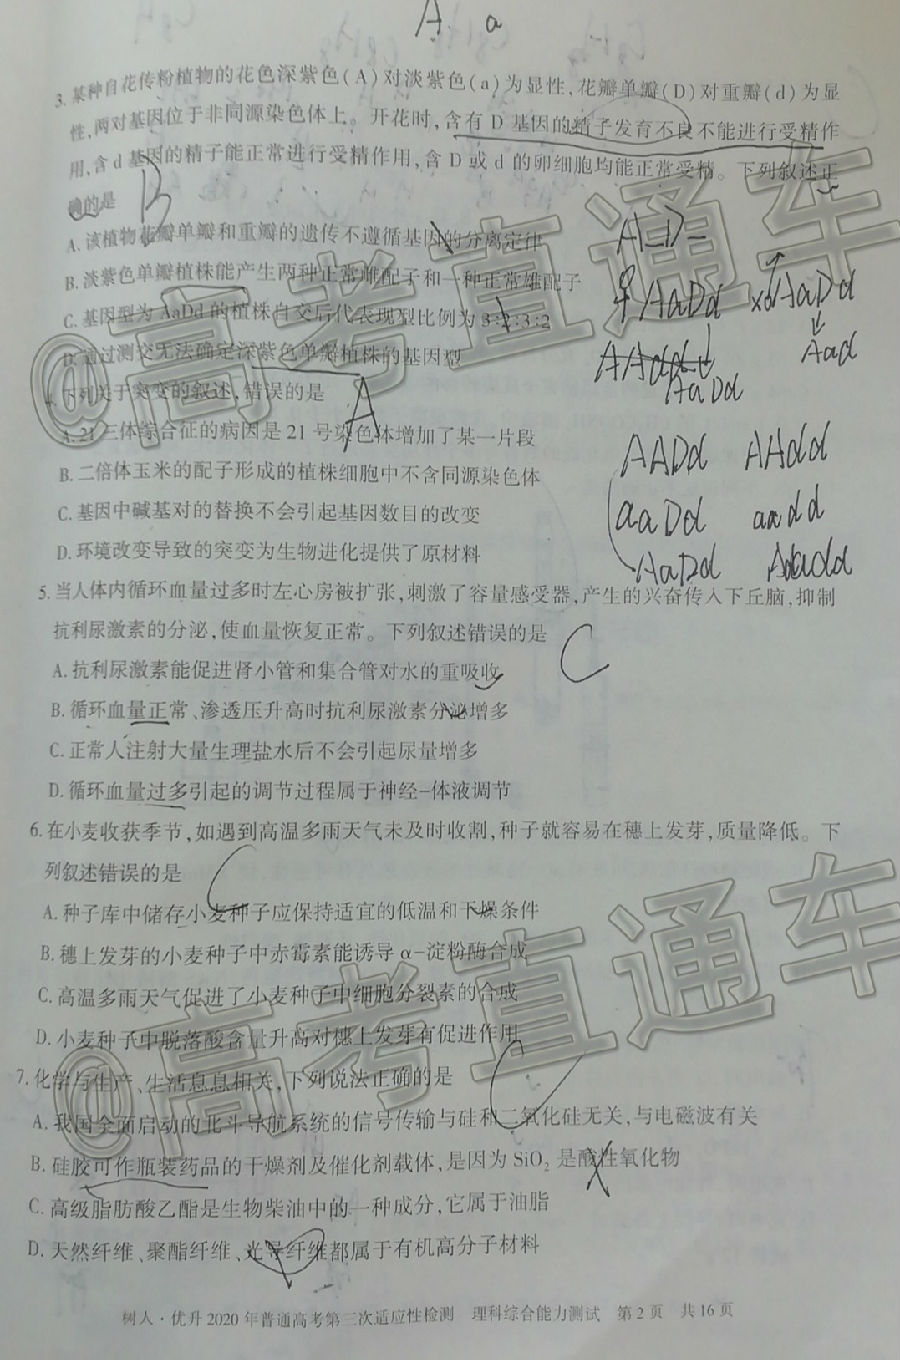 A a
3. 某种自花传粉植物的花色深紫色(A)对淡紫色(a)为显性,花瓣单瓣(D)对重瓣(d)为显
性,两对基因位于非同源染色体上。开花时,含有 D 基因的精子发育不良不能进行受精作
用,含 d 基因的精子能正常进行受精作用,含 D 或 d 的卵细胞均能正常受精。下列叙述正
确的是
B
A. 该植物花瓣单瓣和重瓣的遗传不遵循基因的分离定律
B. 淡紫色单瓣植株能产生两种正常雌配子和一种正常雄配子
C. 基因型为 AaDd 的植株自交后代表现型比例为 3:2:3:2
D. 通过测交无法确定深紫色单瓣植株的基因型
A_D_
♀AaDd xdAaDd
AAdd
AaDd
Aad
下列关于突变的叙述,错误的是
A
A. 21 三体综合征的病因是 21 号染色体增加了某一片段
B. 二倍体玉米的配子形成的植株细胞中不含同源染色体
C. 基因中碱基对的替换不会引起基因数目的改变
D. 环境改变导致的突变为生物进化提供了原材料
AADd AAdd
aaDd aadd
AaDd
5. 当人体内循环血量过多时左心房被扩张,刺激了容量感受器,产生的兴奋传入下丘脑,抑制
抗利尿激素的分泌,使血量恢复正常。下列叙述错误的是
C
A. 抗利尿激素能促进肾小管和集合管对水的重吸收
B. 循环血量正常、渗透压升高时抗利尿激素分泌增多
C. 正常人注射大量生理盐水后不会引起尿量增多
D. 循环血量过多引起的调节过程属于神经-体液调节
6. 在小麦收获季节,如遇到高温多雨天气未及时收割,种子就容易在穗上发芽,质量降低。下
列叙述错误的是
C
A. 种子库中储存小麦种子应保持适宜的低温和干燥条件
B. 穗上发芽的小麦种子中赤霉素能诱导 α-淀粉酶合成
C. 高温多雨天气促进了小麦种子中细胞分裂素的合成
D. 小麦种子中脱落酸含量升高对穗上发芽有促进作用
7. 化学与生产、生活息息相关,下列说法正确的是
A. 我国全面启动的北斗导航系统的信号传输与硅和二氧化硅无关,与电磁波有关
B. 硅胶可作瓶装药品的干燥剂及催化剂载体,是因为 SiO₂ 是酸性氧化物
C. 高级脂肪酸乙酯是生物柴油中的一种成分,它属于油脂
D. 天然纤维、聚酯纤维、光导纤维都属于有机高分子材料
树人·优升 2020 年普通高考第三次适应性检测 理科综合能力测试 第 2 页 共 16 页
@高考直通车
@高考直通车